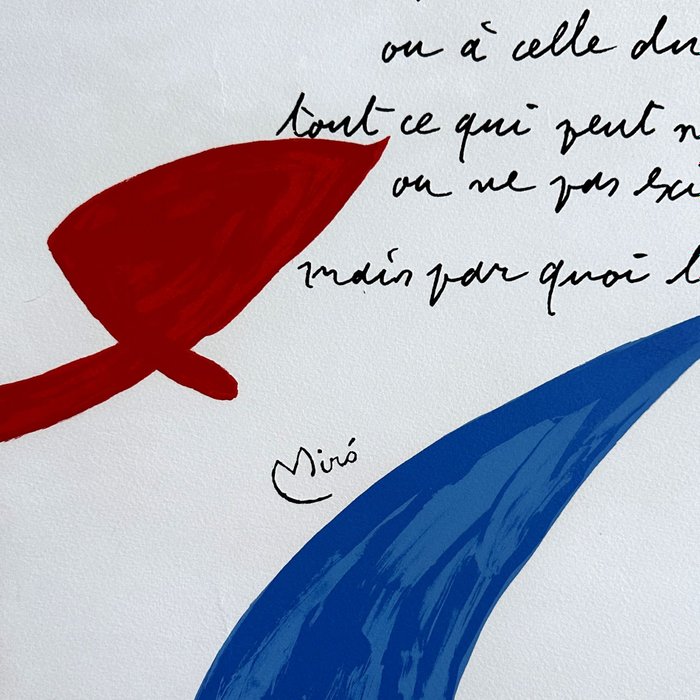 ou à celle du
tout ce qui peut
ou ne pas
mais par quoi
Miró